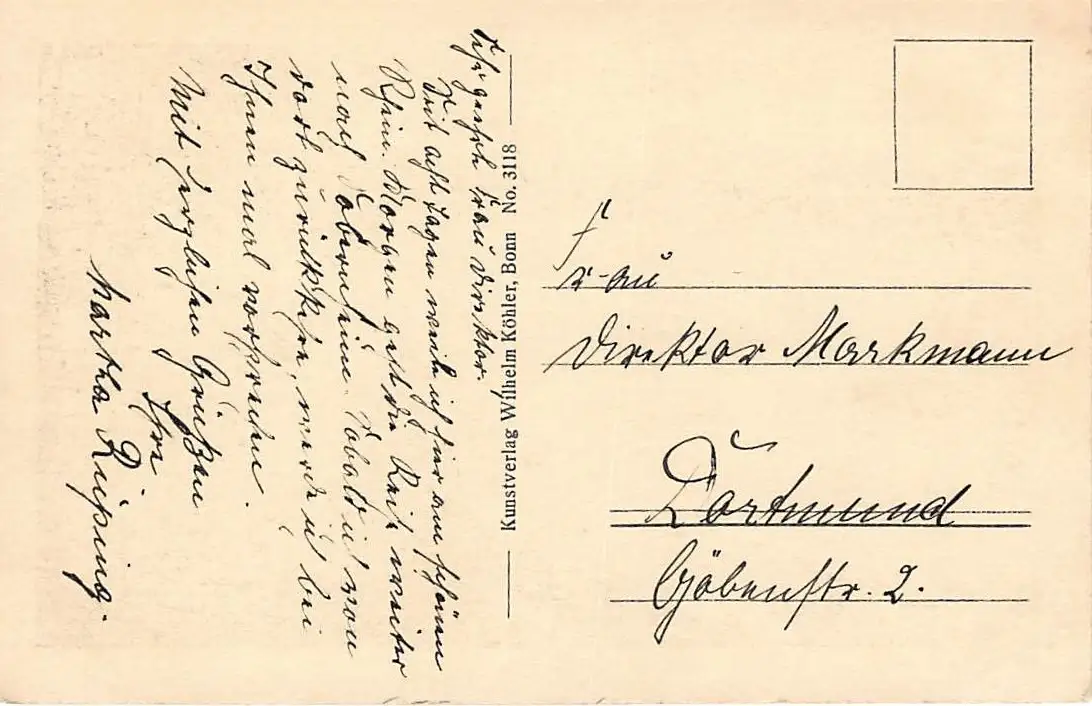 Sehr geehrte Frau Direktor.
Seit acht Tagen weile ich hier am schönen
Rhein. Morgen geht die Reise weiter
nach Oberheim. Sobald ich von
dort zurückkehre, werde ich bei
Ihnen mal vorsprechen.
Mit herzlichen Grüßen
Ihre
Martha Rüping.
Kunstverlag Wilhelm Köhler, Bonn No. 3118
Frau
Direktor Markmann
Dortmund
Göbenstr. 2.